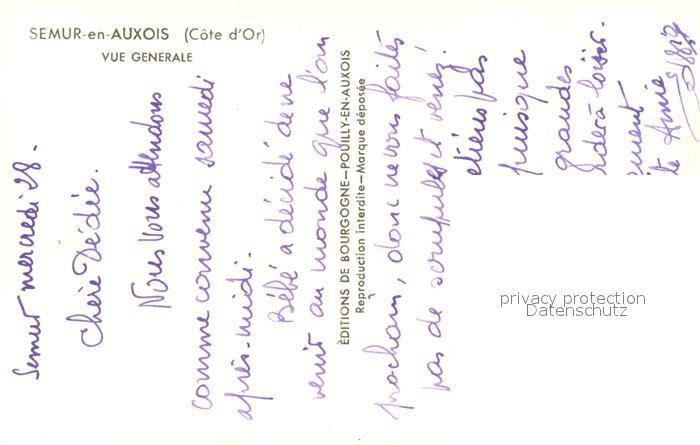 SEMUR-en-AUXOIS (Côte d'Or)
VUE GENERALE
ÉDITIONS DE BOURGOGNE—POUILLY-EN-AUXOIS
Reproduction interdite—Marque déposée
Semur mercredi 28.
Chère Dédée.
Nous vous attendons
comme convenu samedi
après-midi.
Bébé a décidé de ne
venir au monde que l'an
prochain, donc ne vous faites
pas de scrupules et venez!
puisque
grandes
à loisir.
Amie
privacy protection
Datenschutz